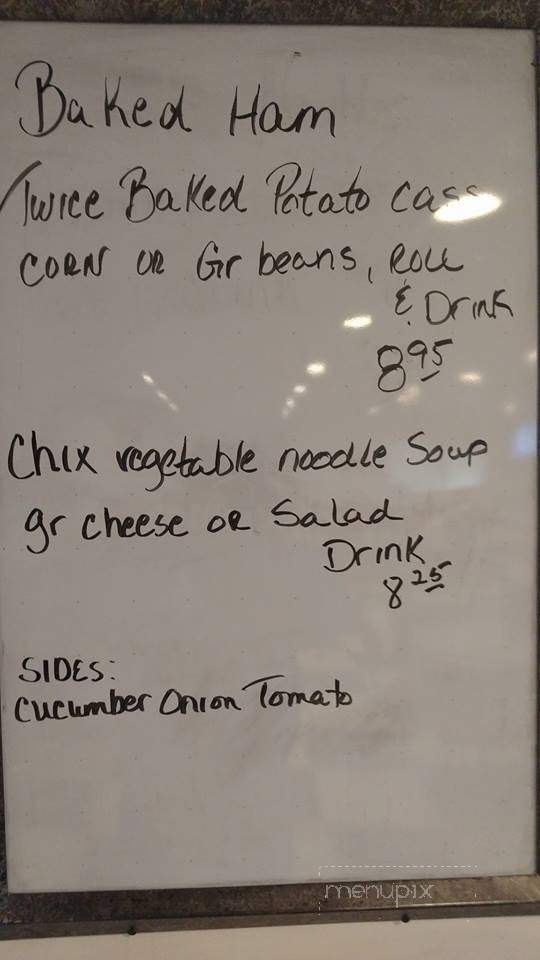 Baked Ham
Twice Baked Potato cass
CORN OR Gr beans, ROLL
& Drink
8 95
Chix vegetable noodle Soup
gr cheese OR Salad
Drink
8 25
SIDES:
Cucumber Onion Tomato
menupix